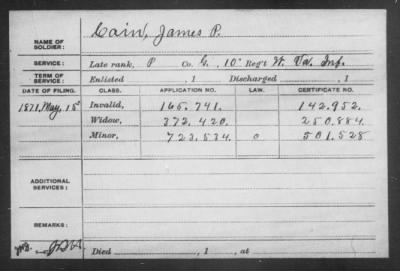 NAME OF SOLDIER: Cain, James P.
SERVICE: Late rank, P Co. G, 10" Reg't W. Va. Inf.
TERM OF SERVICE: Enlisted , 1 Discharged , 1
DATE OF FILING. CLASS. APPLICATION NO. LAW. CERTIFICATE NO.
1871, May, 15 Invalid, 165.741. 142.952.
Widow, 372.420. 250.884.
Minor, 723.534. o 501.528
ADDITIONAL SERVICES:
REMARKS:
Died , 1 , at